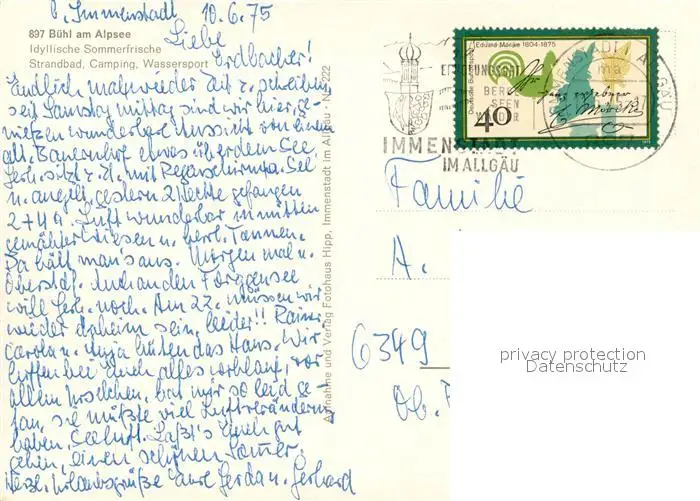 b. Immenstadt 10.6.75
897 Bühl am Alpsee
Idyllische Sommerfrische
Strandbad, Camping, Wassersport
Liebe
Erdbacher!
Endlich mal wieder Zeit z. schreiben,
seit Samstag mittag sind wir hier, ge-
nießen wunderbar Aussicht von einem
alt. Bauernhof etwas über dem See.
Gerh. sitzt z. Zt. mit Regenschirm a. See
u. angelt, gestern 2 Hechte gefangen
2 + 4 Luft wunderbar inmitten
gemähter Wiesen u. herrl. Tannen.
Da hält man's aus. Morgen mal n.
Oberstdf. Auch an den Forggensee
will Gerh. noch. Am 22. müssen wir
wieder daheim sein, leider!! Rainer
Carola u. Anja hüten das Haus. Wir
hoffen bei Euch alles wohlauf, vor
allem, hat mir so leid ge-
tan, sie müßte viel Luftverändern
haben Seeluft. Laßt's Euch gut
gehn, einen schönen Sommer.
Herzl. Urlaubsgrüße Eure Gerda u. Gerhard
Aufnahme und Verlag Fotohaus Hipp, Immenstadt im Allgäu · Nr. 222
Eduard Mörike 1804-1875
Deutsche Bundespost
40
IMMENSTADT
IM ALLGÄU
Familie
A.
6349
privacy protection
Datenschutz
Ob.